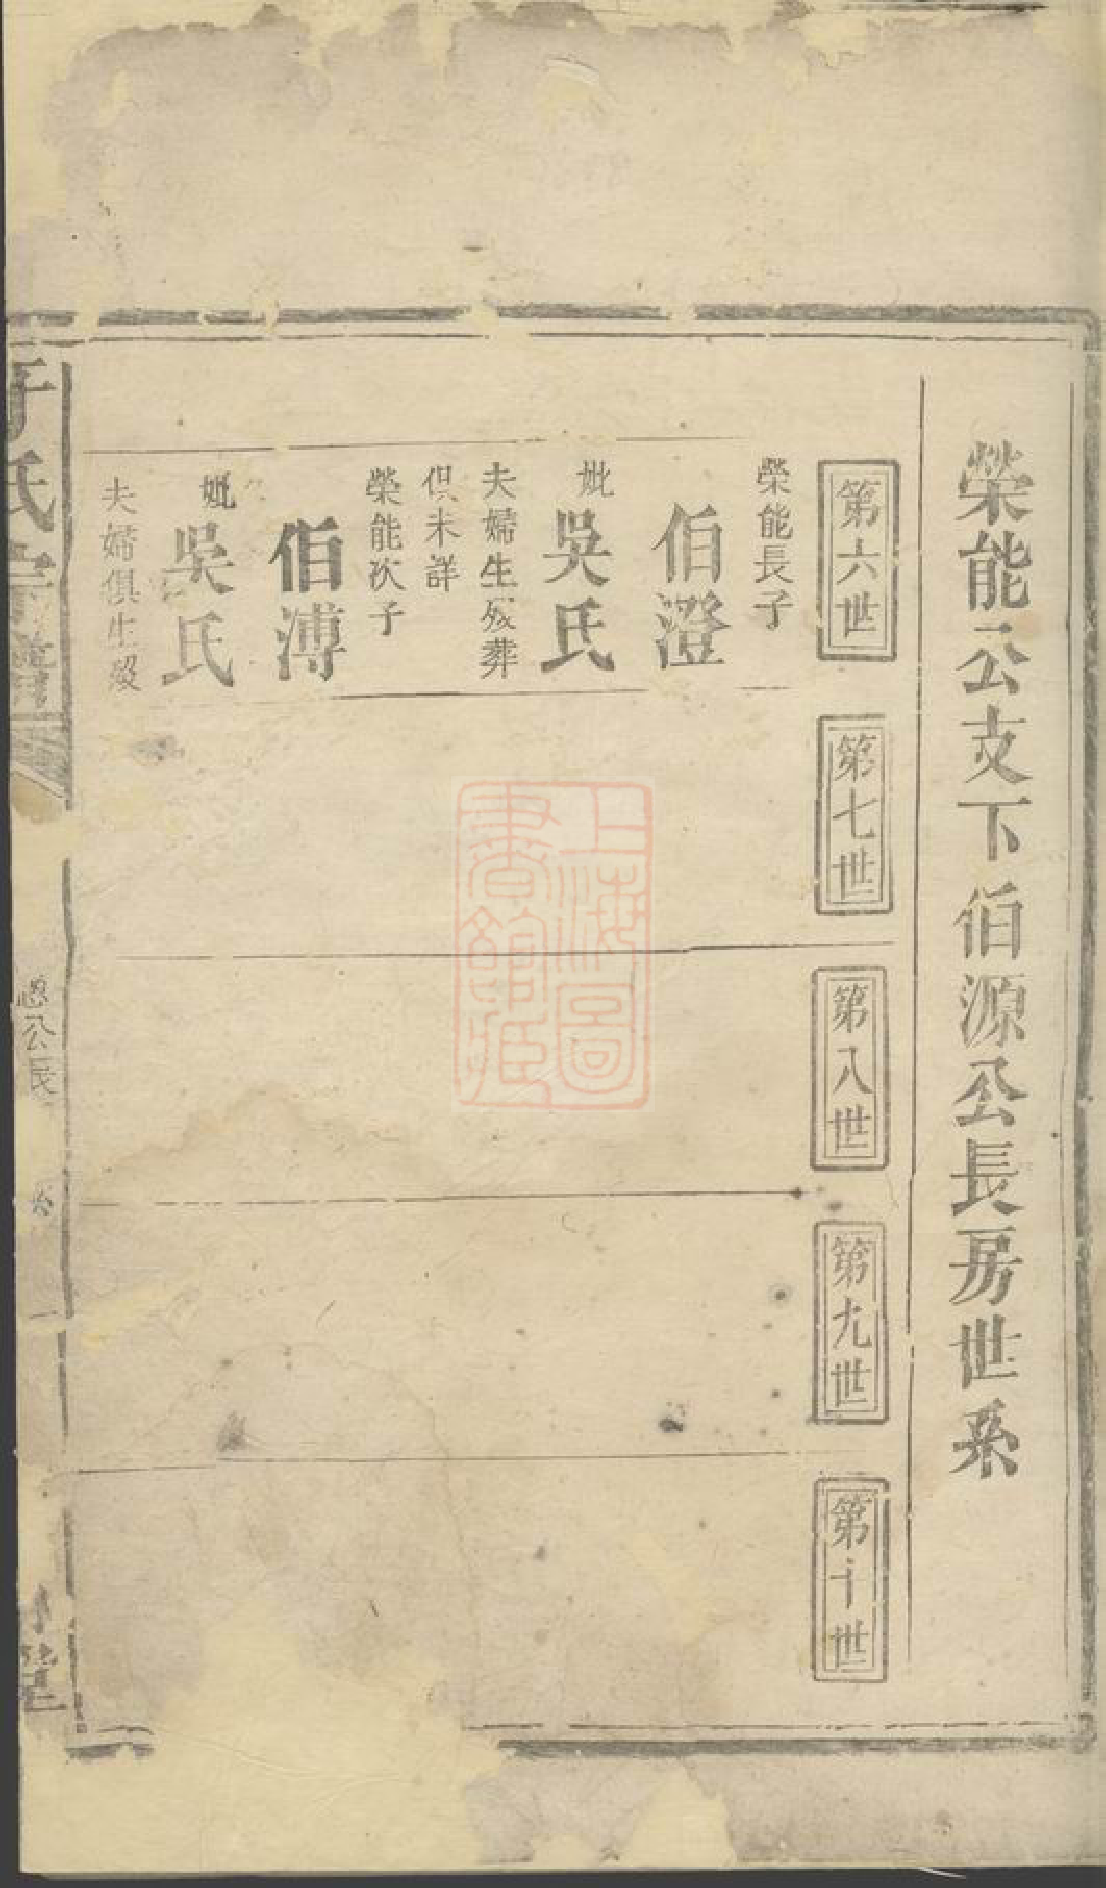 榮能公支下伯源公長房世系
第六世
第七世
第八世
第九世
第十世
榮能長子
伯澄
妣吳氏
夫婦生殁葬
俱未詳
榮能次子
伯溥
妣吳氏
夫婦俱生殁
氏宗譜
公長
堂
上海圖
書館藏